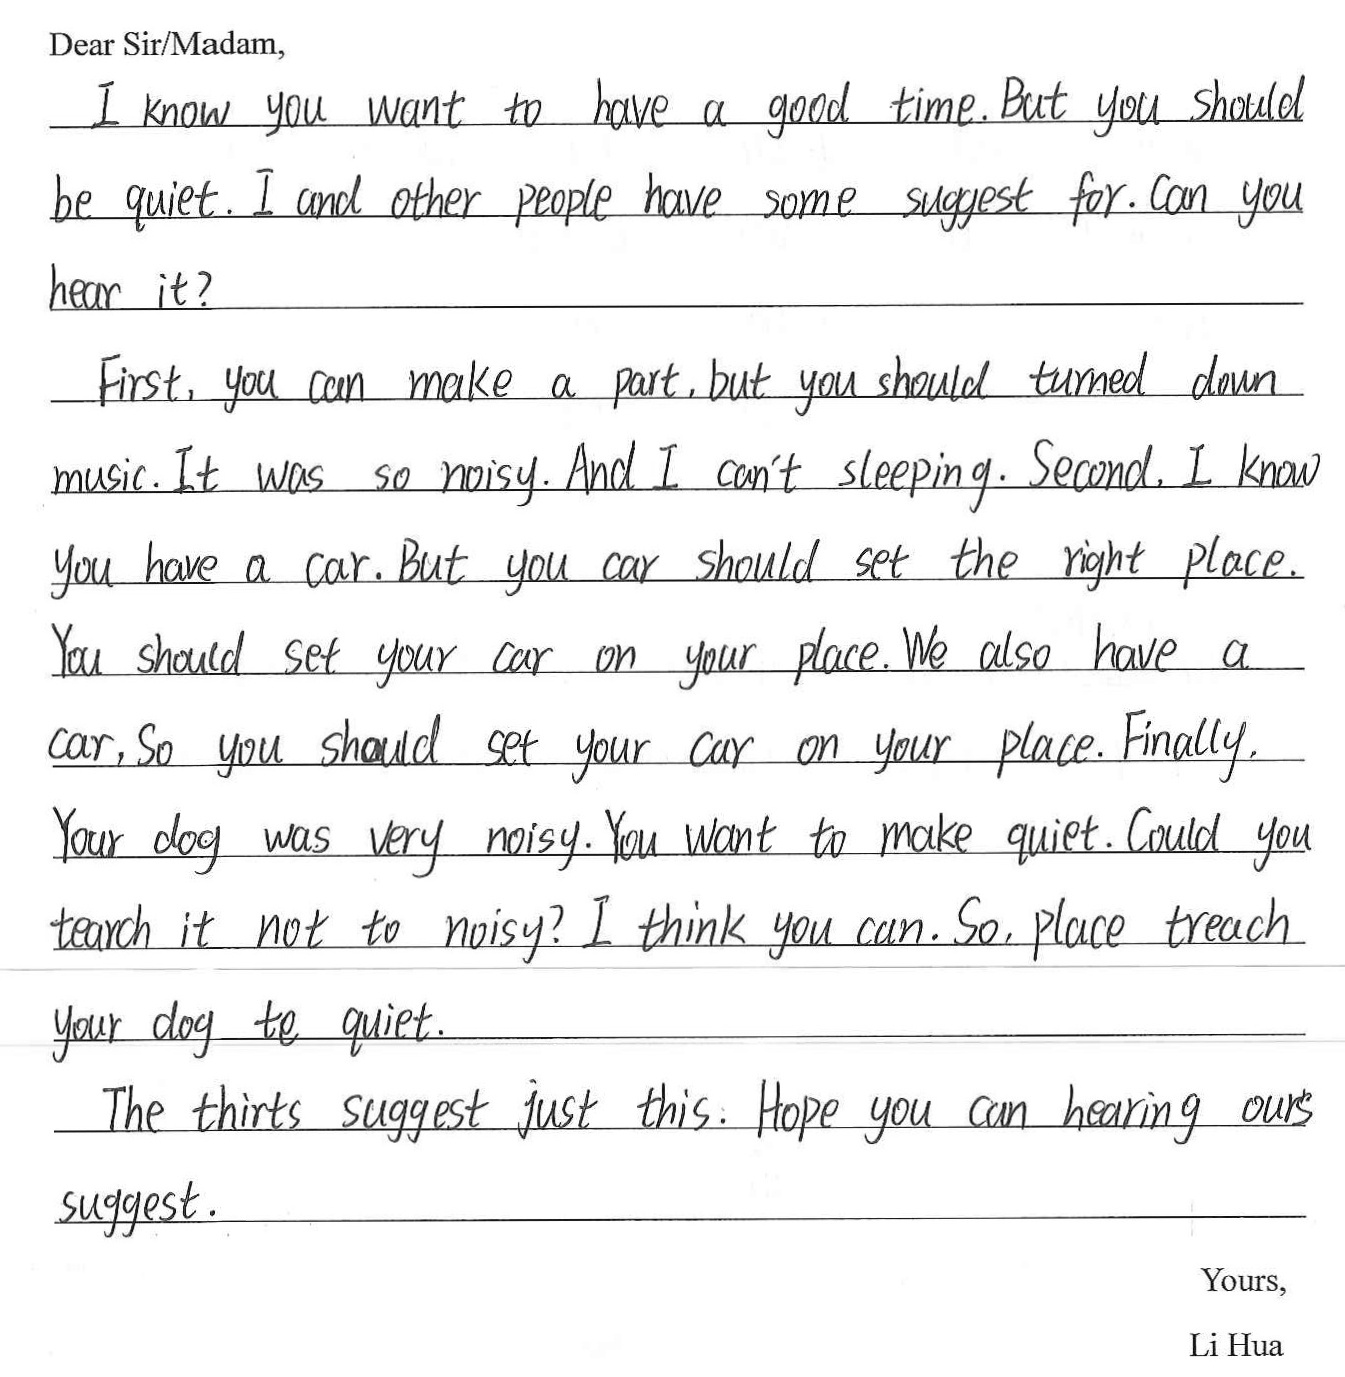 Dear Sir/Madam,
I know you want to have a good time. But you should
be quiet. I and other people have some suggest for. Can you
hear it?
First, you can make a part, but you should turned down
music. It was so noisy. And I can't sleeping. Second, I know
you have a car. But you car should set the right place.
You should set your car on your place. We also have a
car, So you should set your car on your place. Finally,
Your dog was very noisy. You want to make quiet. Could you
tearch it not to noisy? I think you can. So, place treach
your dog te quiet.
The thirts suggest just this. Hope you can hearing ours
suggest.
Yours,
Li Hua